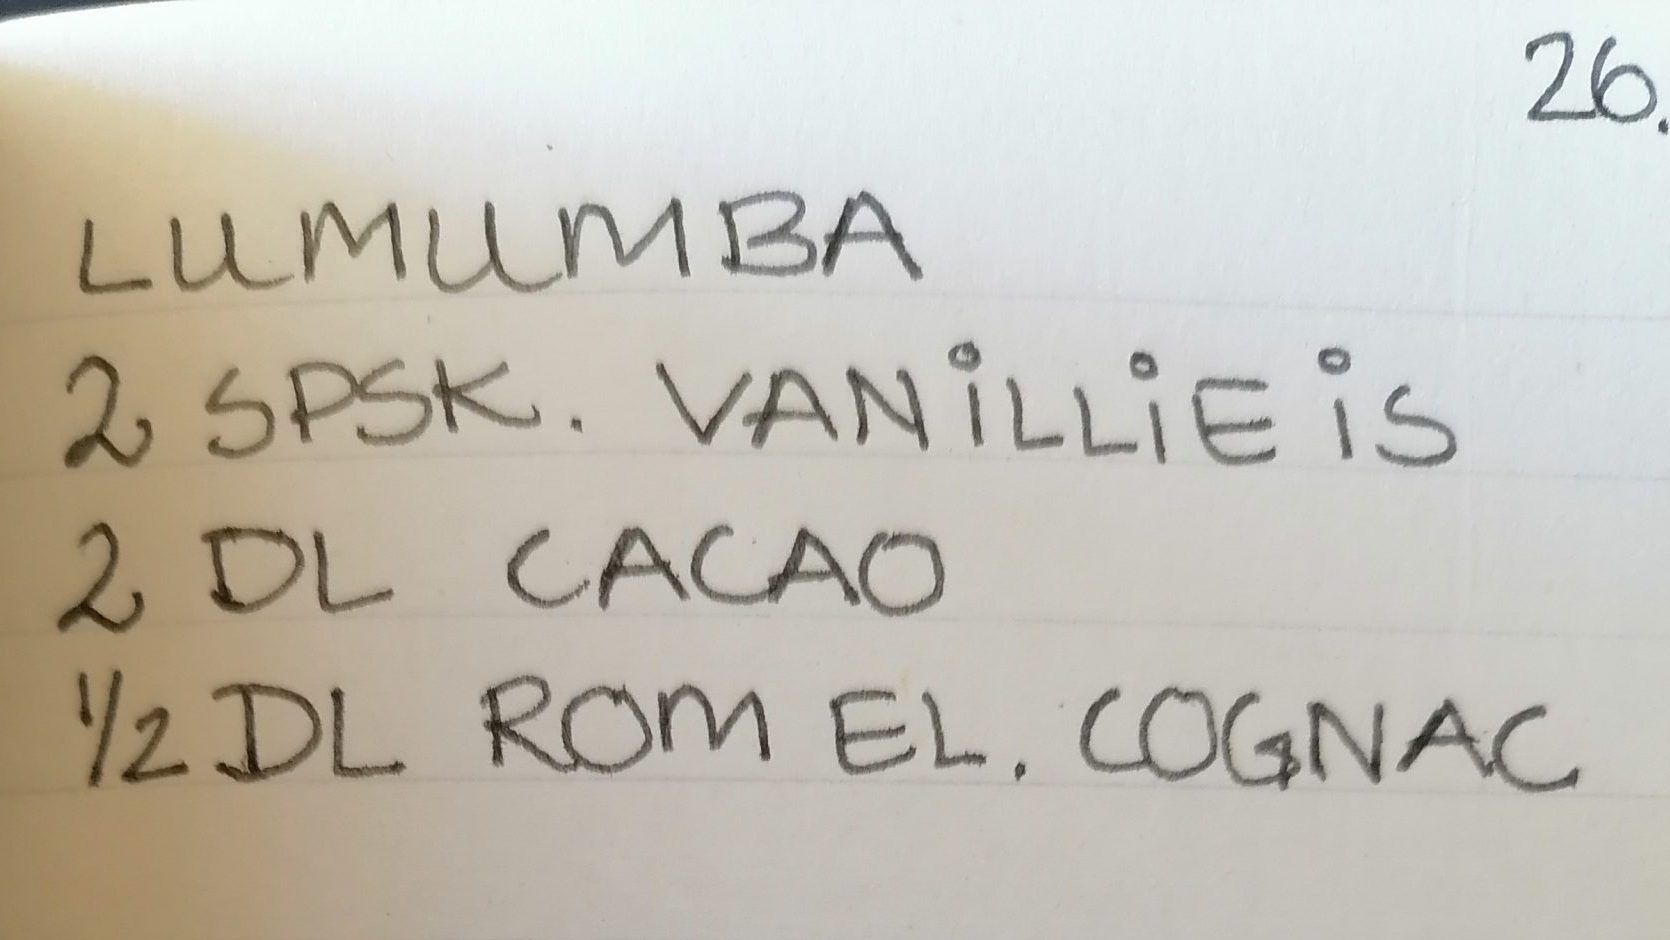 26.
LUMUMBA
2 SPSK. VANILLIEIS
2 DL CACAO
1/2 DL ROM EL. COGNAC